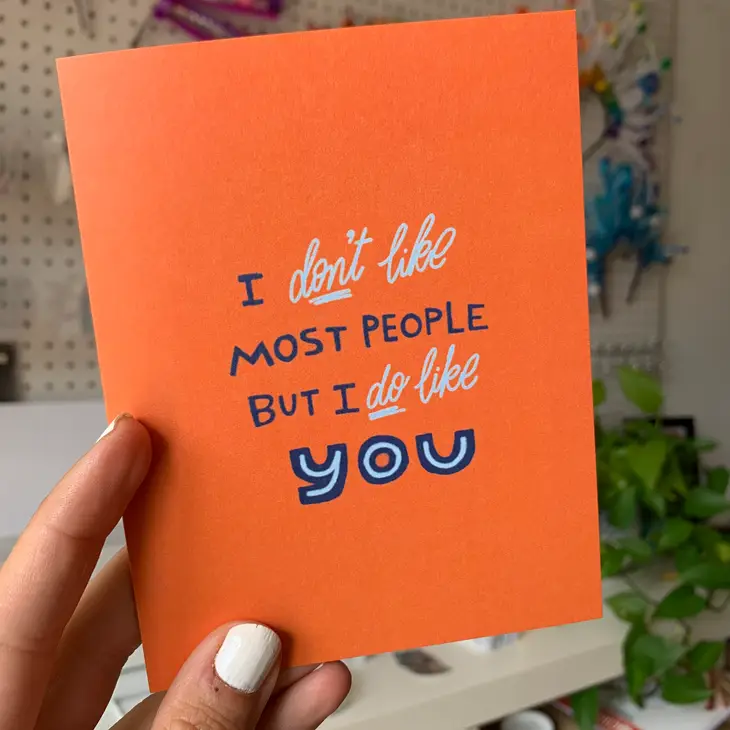 I don't like
MOST PEOPLE
BUT I do like
YOU